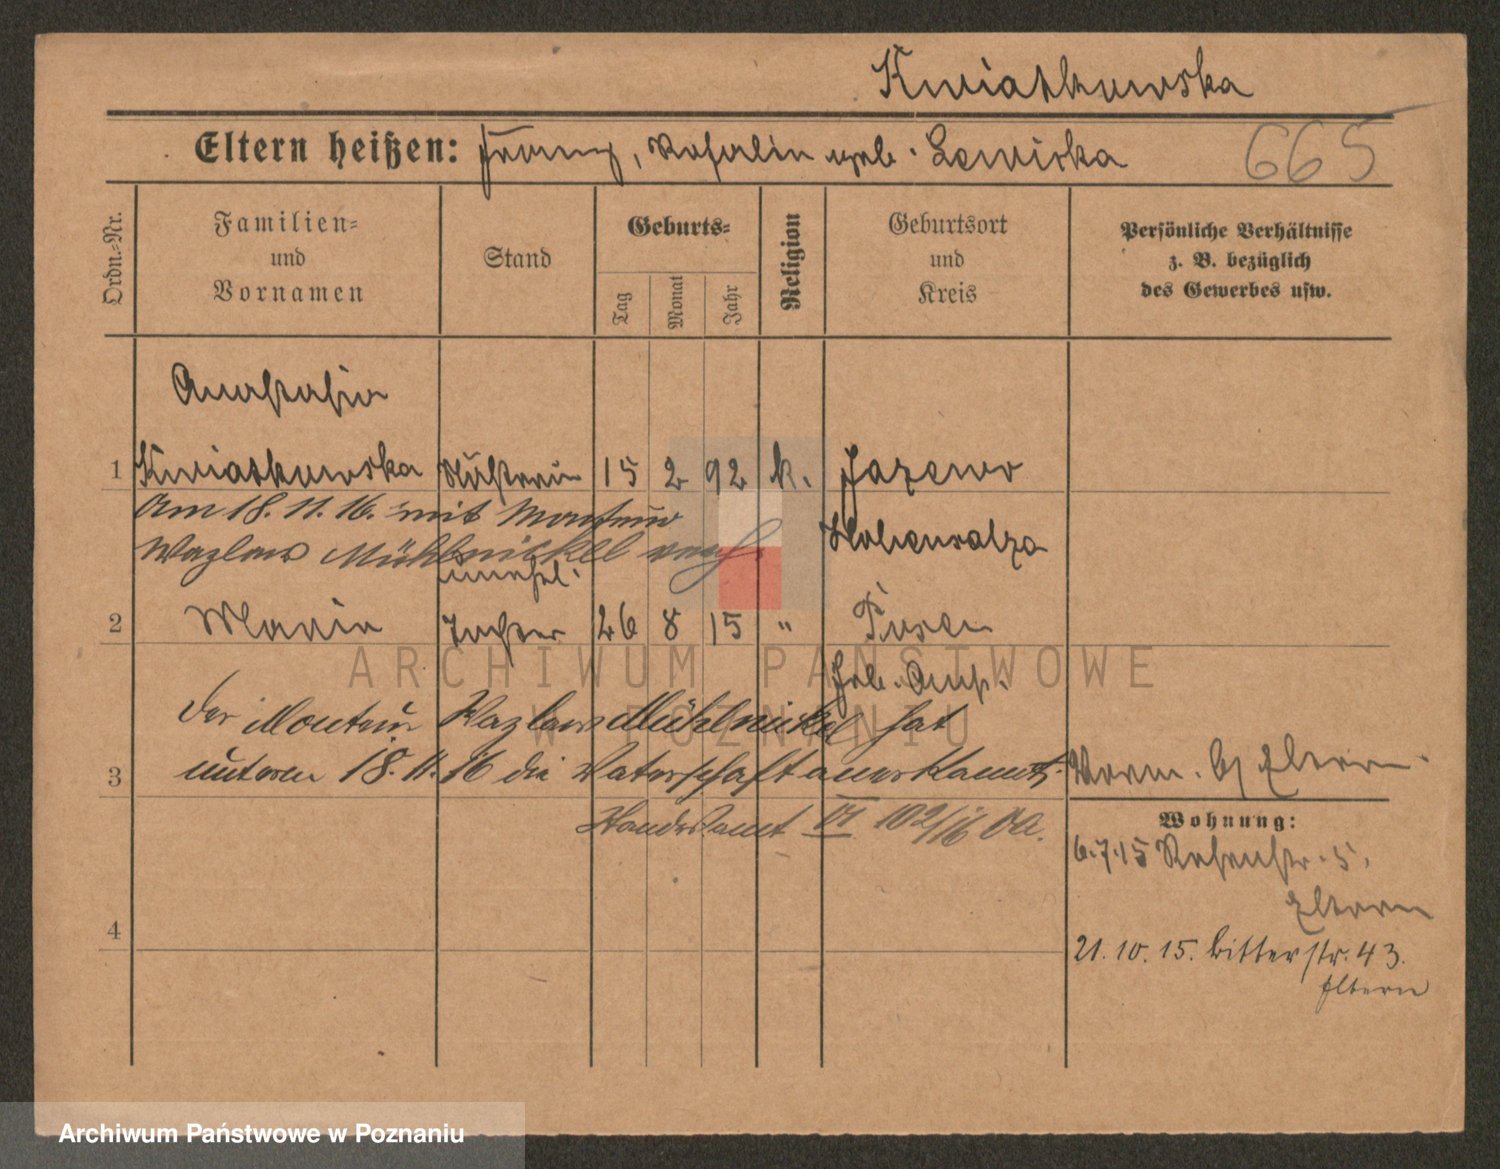 Kwiatkowska
Eltern heißen: Franz, Rosalie geb. Lewicka
665
Ordn.-Nr.
Familien-
und
Vornamen
Stand
Geburts-
Tag
Monat
Jahr
Religion
Geburtsort
und
Kreis
Persönliche Verhältnisse
z. B. bezüglich
des Gewerbes usw.
Anastasia
1 Kwiatkowska 15 2 92 k.
Am 18. 11. 16. mit Monteur
Hohensalza
Wazlaw Mühlnickel verh.
unehel.
2 Maria Tochter 26 8 15 " Posen
Geb. Anst.
Der Monteur Wazlaw Mühlnickel hat
3 unterm 18. 11. 16 die Vaterschaft anerkannt.
Standesamt VI 102/16
Eltern
Wohnung:
6.7.15 5.
Eltern
4
21. 10. 15. Ritterstr. 43.
Eltern
ARCHIWUM PAŃSTWOWE
W POZNANIU
Archiwum Państwowe w Poznaniu